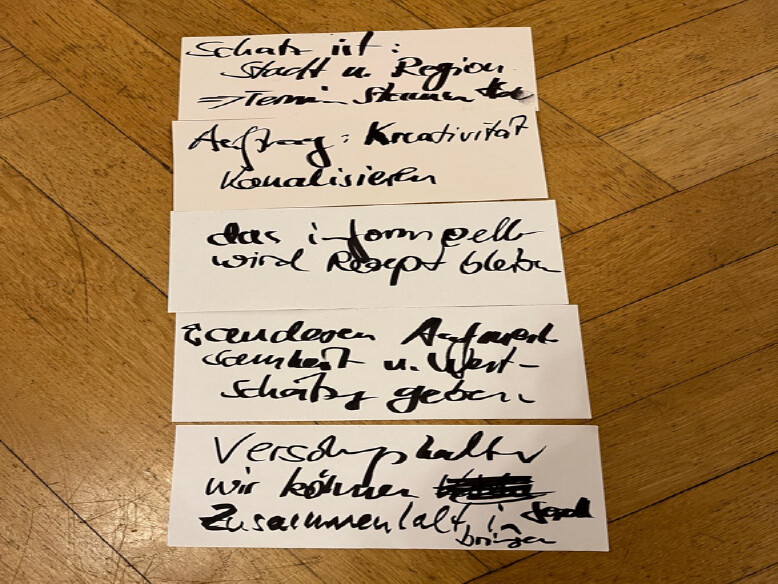 Schatz ist:
Stadt u. Region
⇒ Termin
Auftrag: Kreativität
kanalisieren
das informelle
wird Rezept bleiben
anderen Aufmerk
samkeit u. Wert-
schätzg geben.
wir können
Zusammenhalt in
bringen